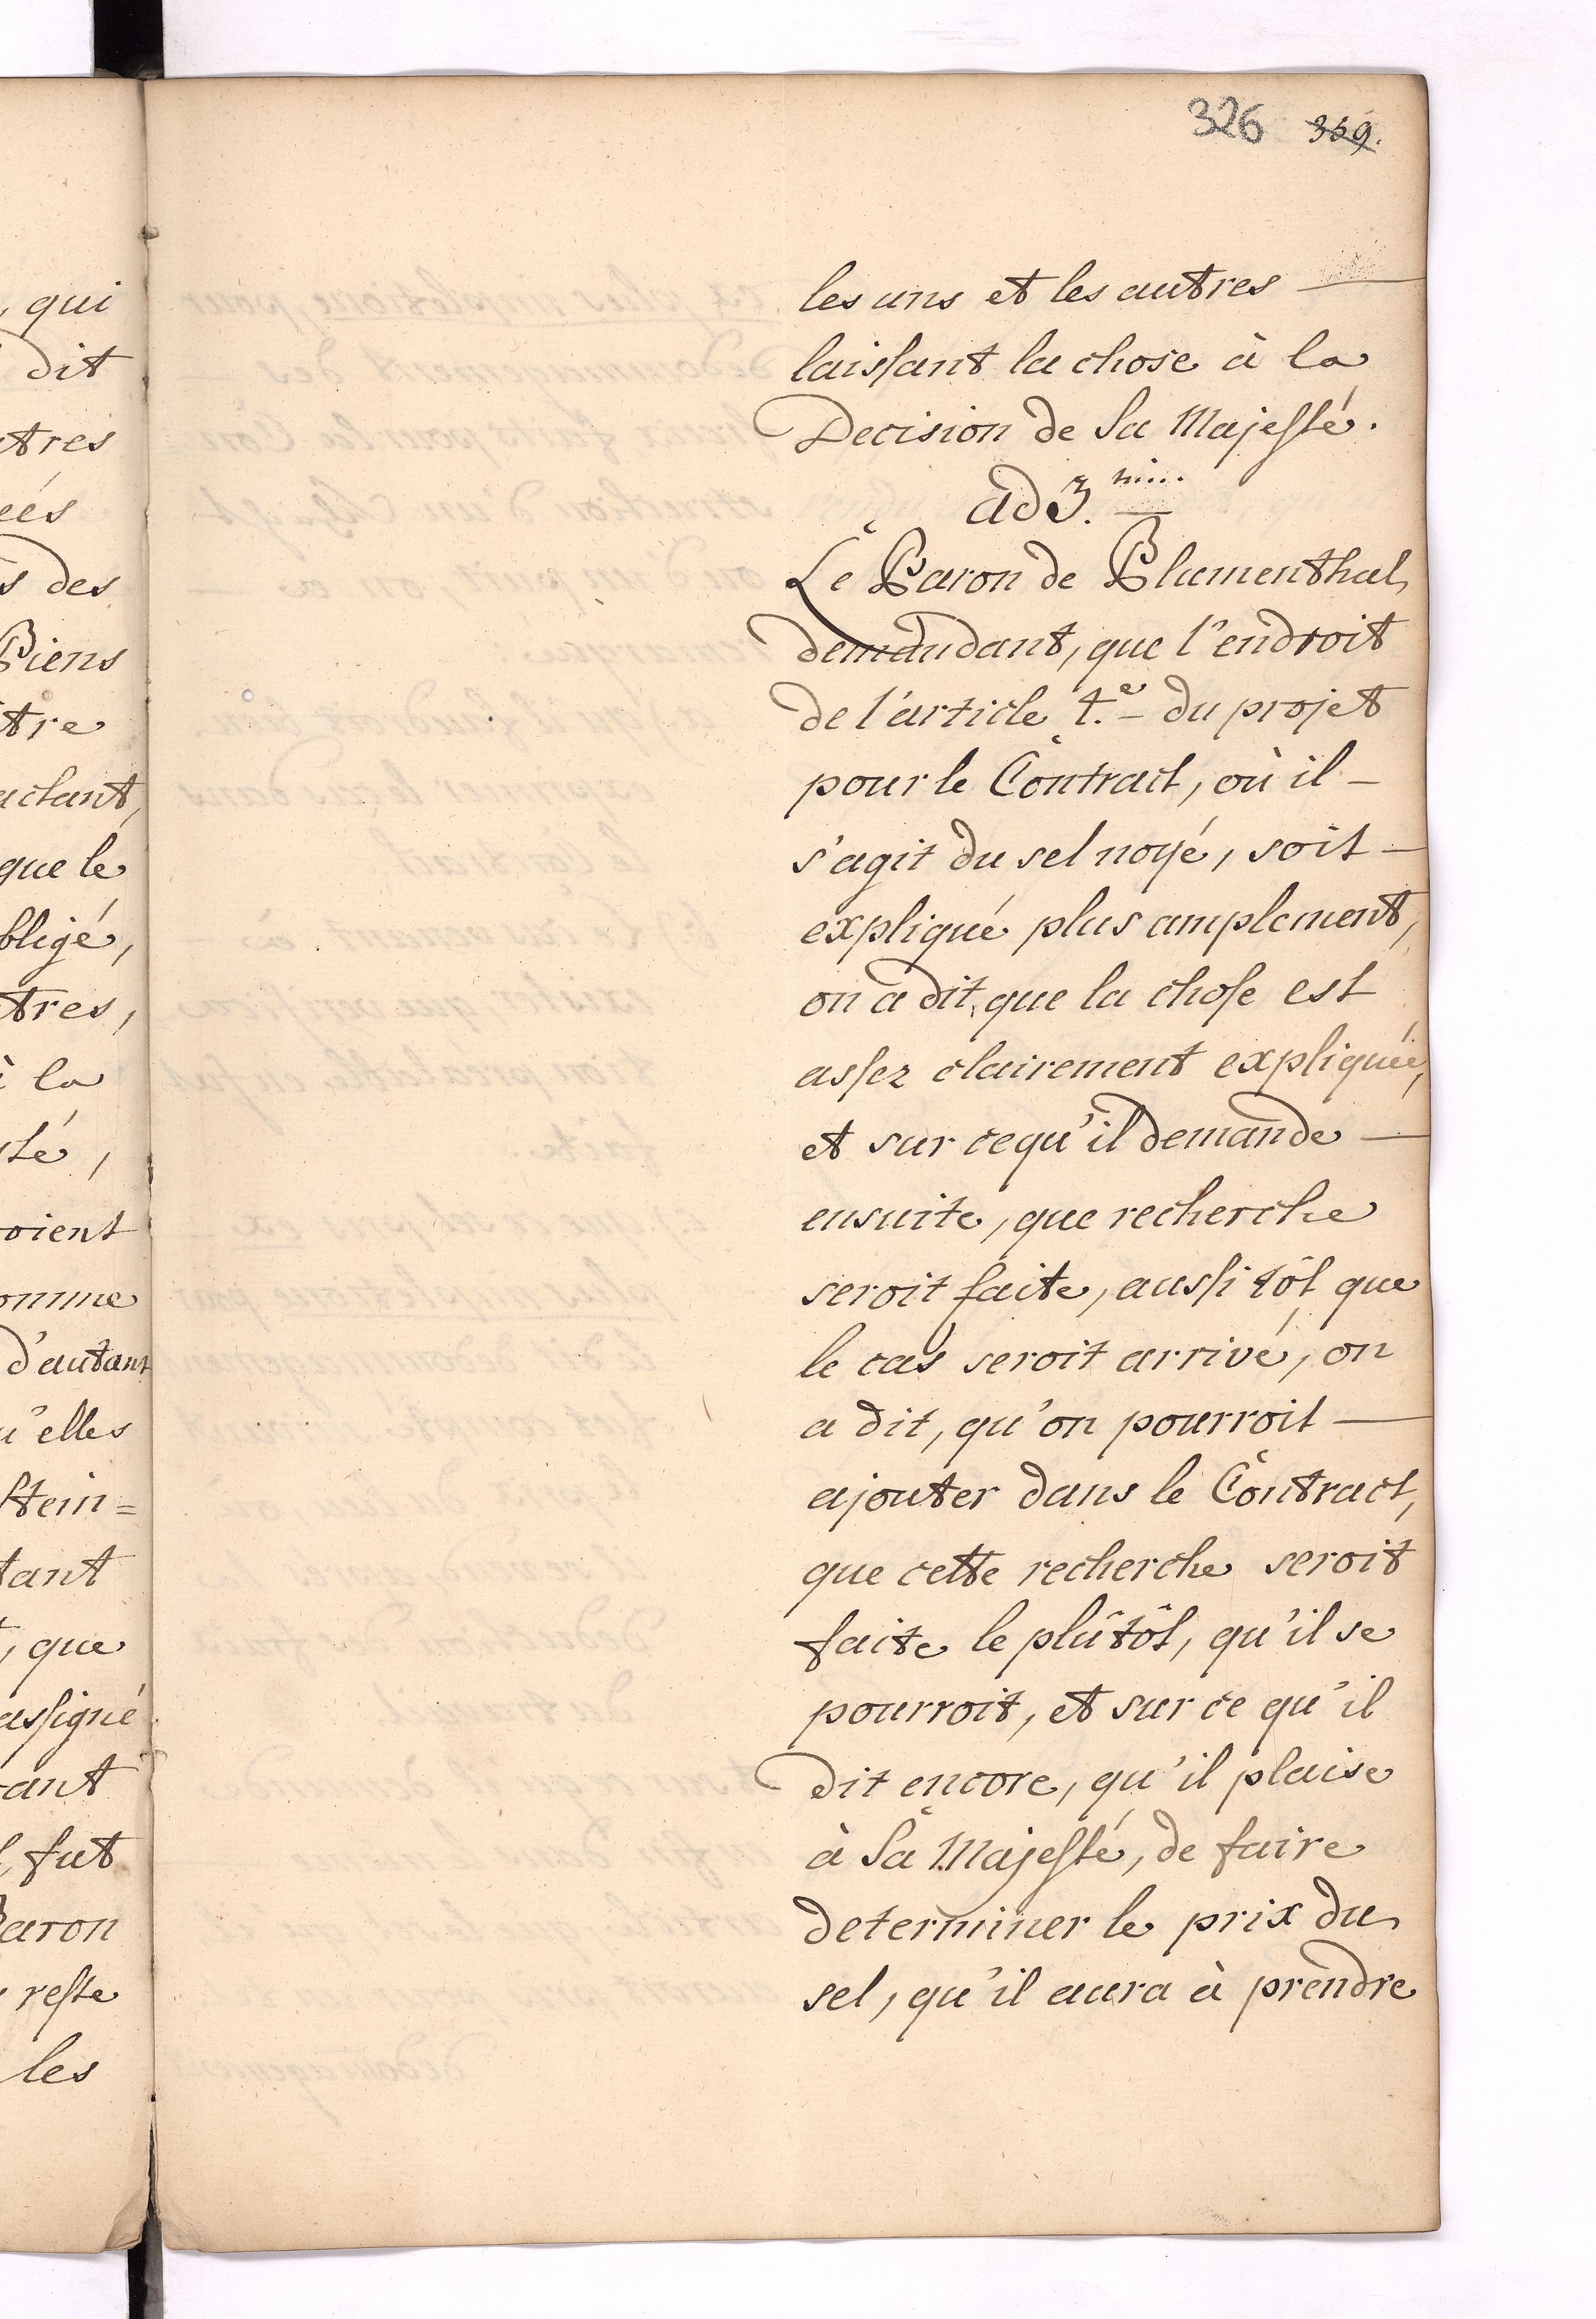 326 359.
les uns et les autres —
laissant la chose à la
Decision de Sa Majesté.
ad 3.
Le Baron de Blumenthal
demandant, que l'endroit
de l'article 4.e du projet
pour le Contract, où il —
s'agit du sel noyé, soit —
expliqué plus amplement,
on a dit, que la chose est
assez clairement expliquée,
et sur cequ'il demande —
ensuite, que recherche
seroit faite, aussi tôt que
le cas seroit arrivé, on
a dit, qu'on pourroit —
ajouter dans le Contract,
que cette recherche seroit
faite le plûtôt, qu'il se
pourroit, et sur ce qu'il
dit encore, qu'il plaise
à Sa Majesté, de faire
determiner le prix du
sel, qu'il aura à prendre
, qui
dit
tres
éés
s des
Biens
tre
actant,
que le
bligé,
tres,
à la
sté,
roient
omme
d'autant
u'elles
stein=
tant
, que
assigné
ant
fut
Baron
reste
les